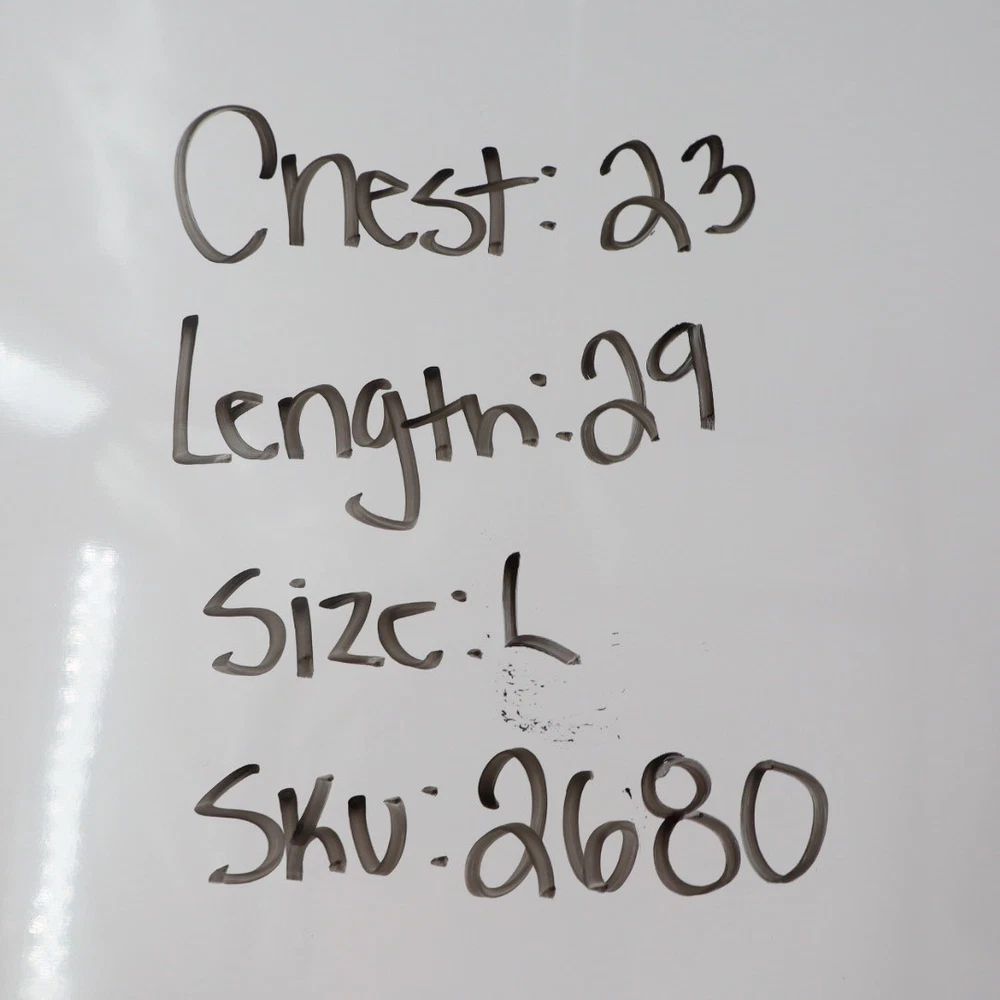 Chest: 23
Length: 29
Size: L
SKU: 2680